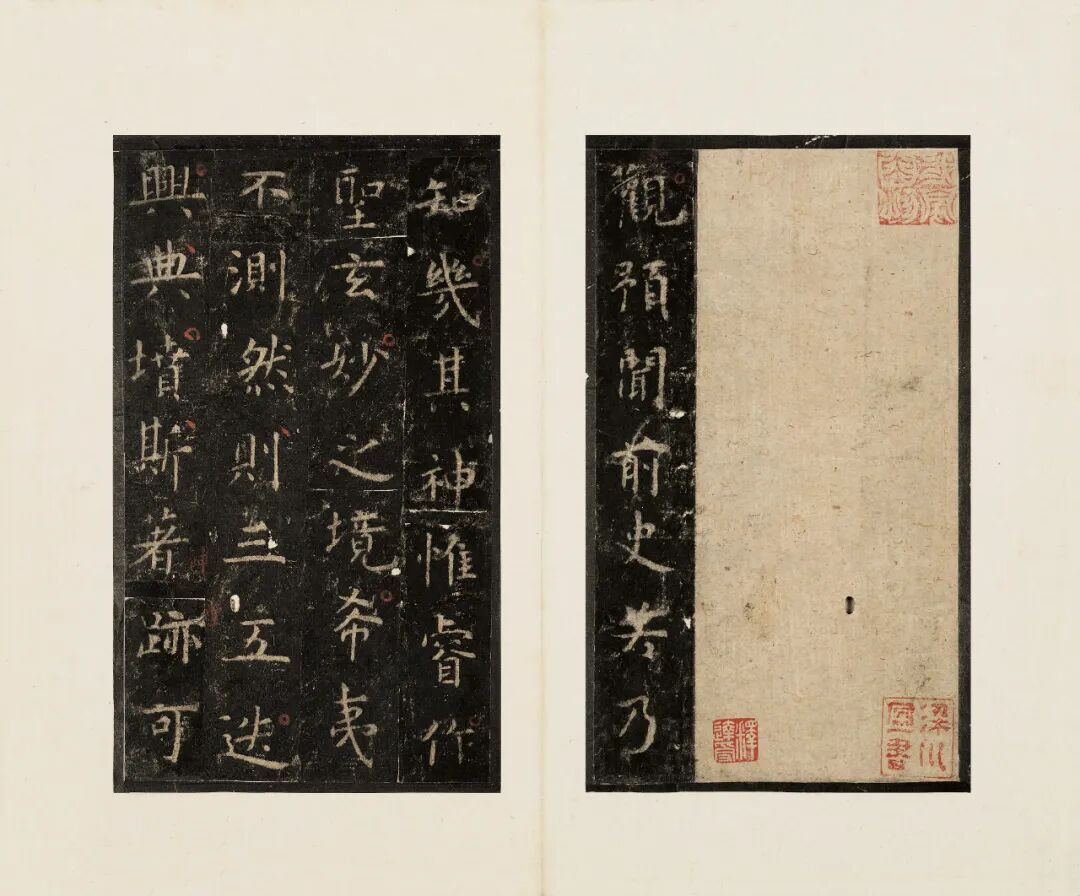 觀預聞前史若乃
知幾其神惟睿作
聖玄妙之境希夷
不測然則三五迭
興典墳斯著跡可